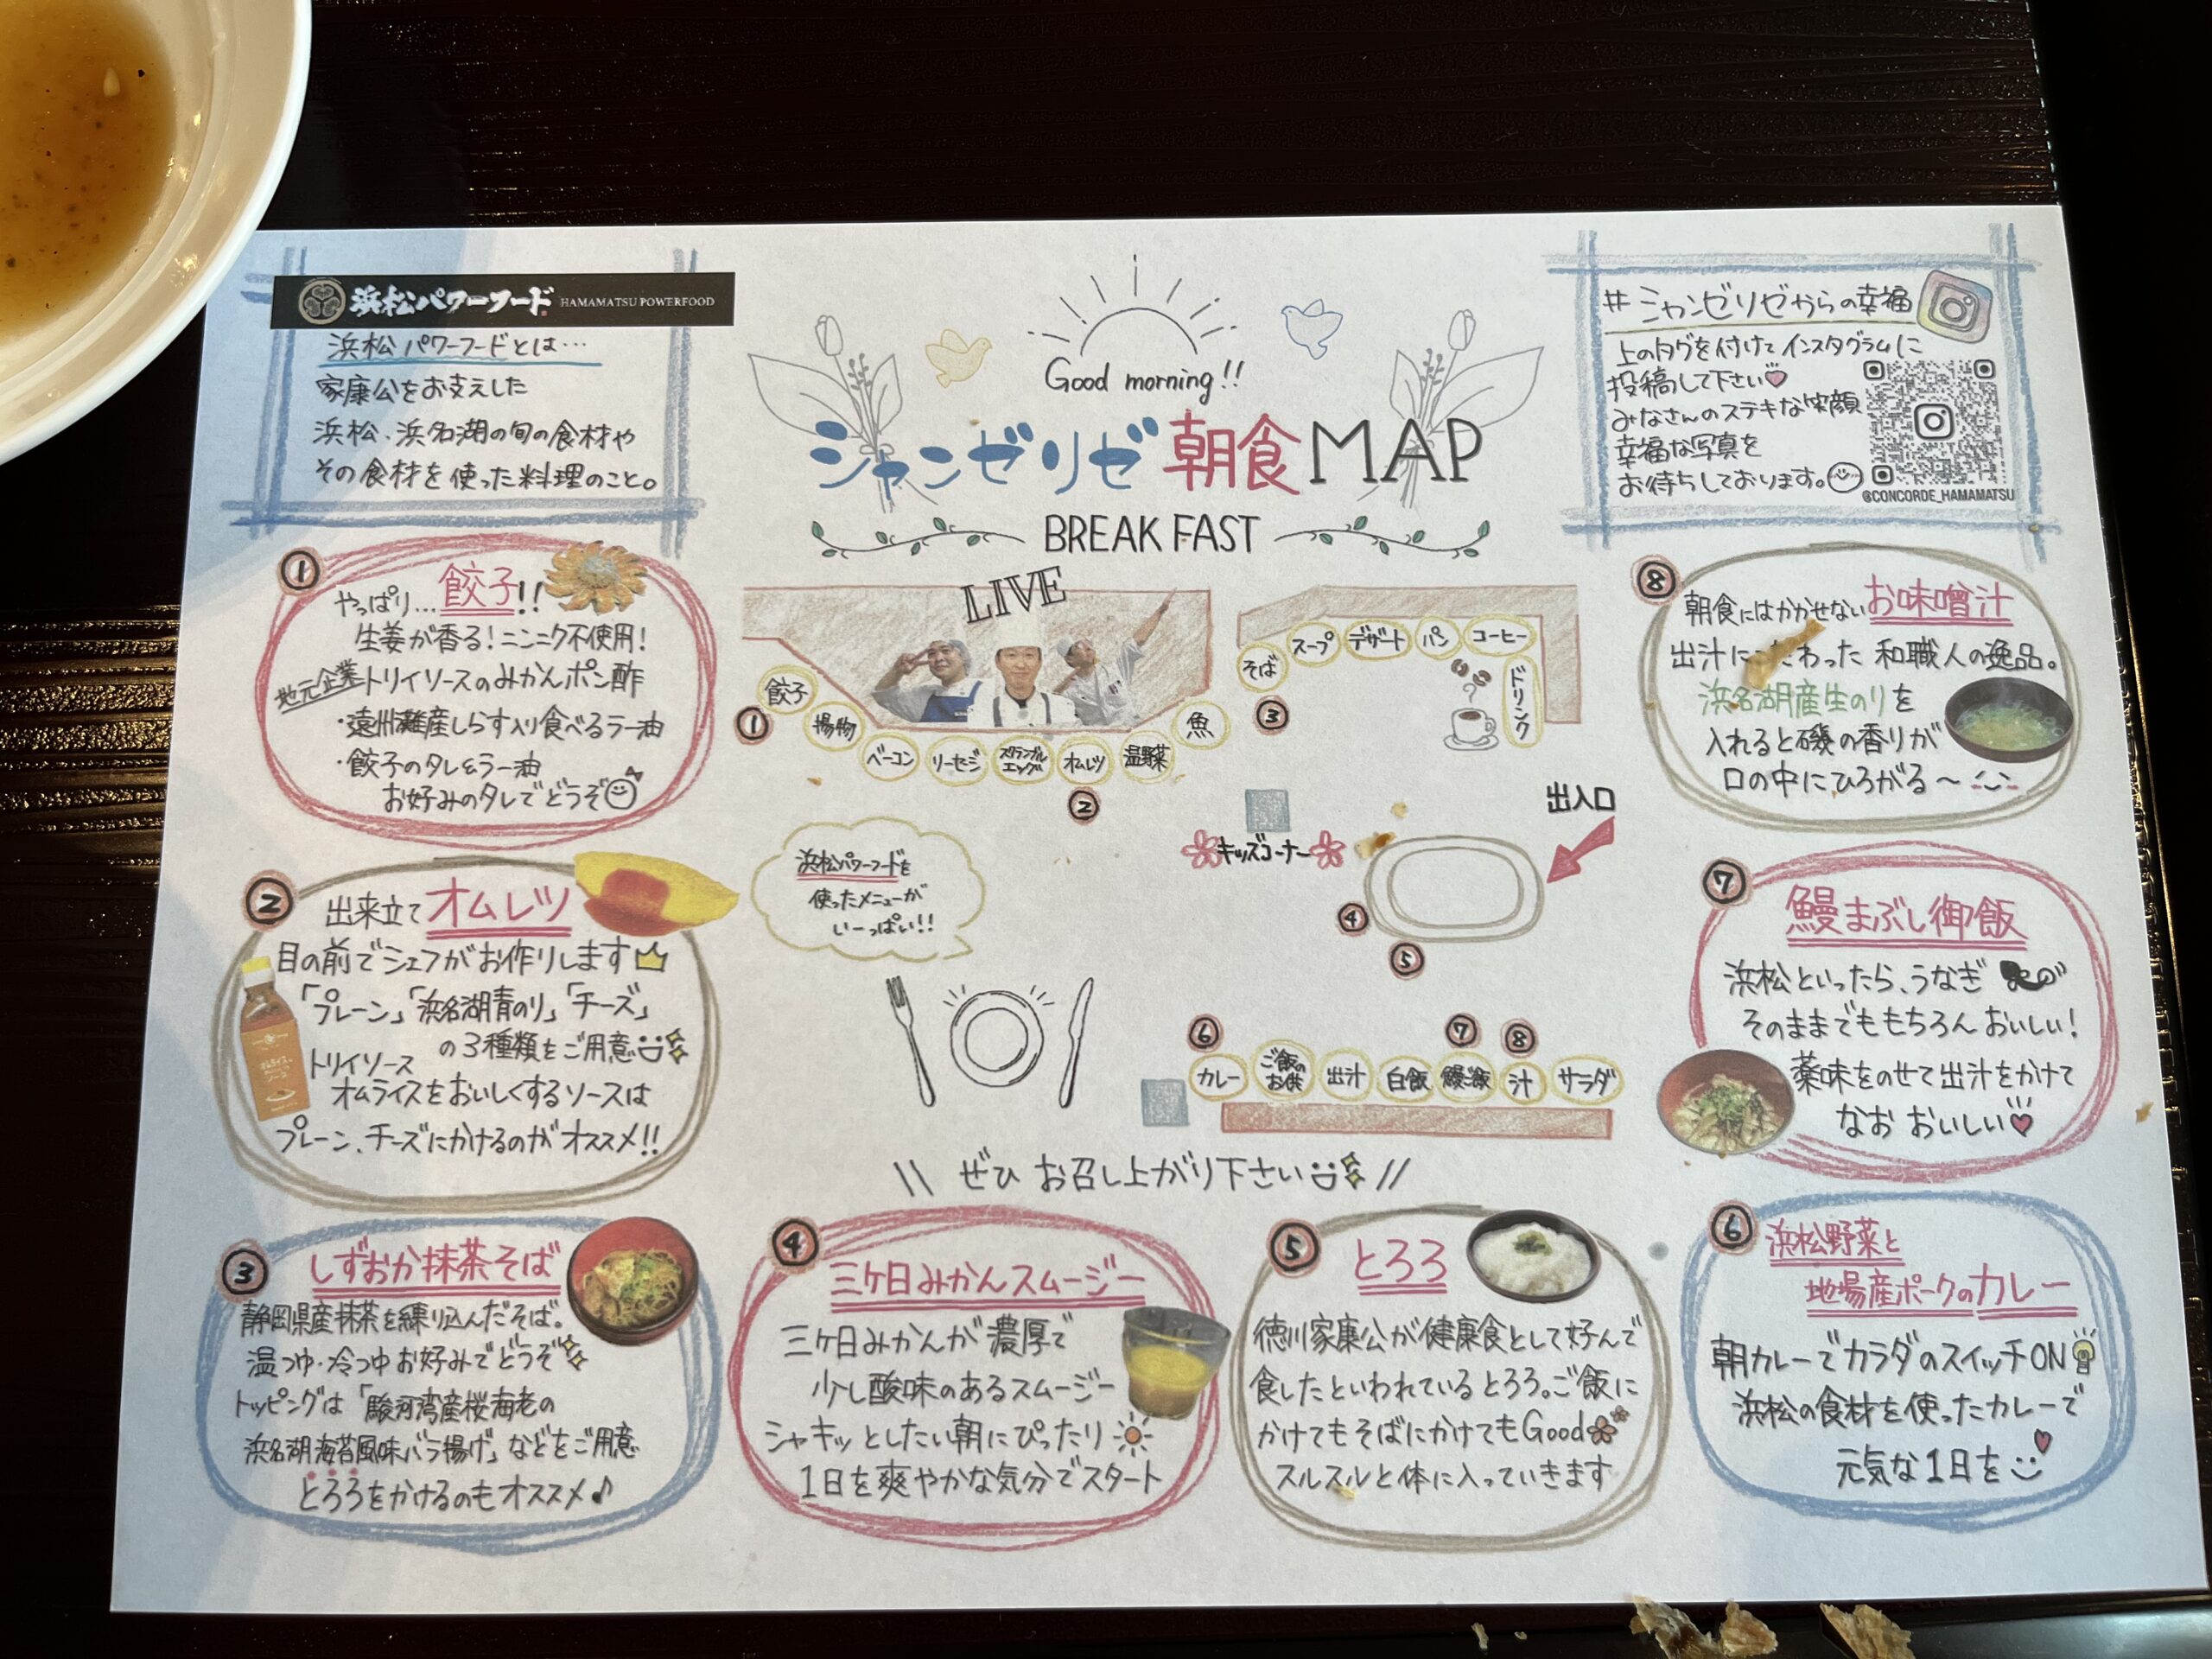 浜松パワーフード HAMAMATSU POWERFOOD
浜松パワーフードとは…
家康公をお支えした
浜松、浜名湖の旬の食材や
その食材を使った料理のこと。
Good morning!!
シャンゼリゼ朝食MAP
BREAK FAST
#シャンゼリゼからの幸福
上のタグを付けてインスタグラムに
投稿して下さい
みなさんのステキな笑顔
幸福な写真を
お待ちしております。
@CONCORDE_HAMAMATSU
①
やっぱり…餃子!!
生姜が香る!ニンニク不使用!
地元企業トリイソースのみかんポン酢
・遠州灘産しらす入り食べるラー油
・餃子のタレ&ラー油
お好みのタレでどうぞ
②
出来立てオムレツ
目の前でシェフがお作りします
「プレーン」「浜名湖青のり」「チーズ」
の3種類をご用意
トリイソース
オムライスをおいしくするソースは
プレーン、チーズにかけるのがオススメ!!
③
しずおか抹茶そば
静岡県産抹茶を練り込んだそば。
温つゆ・冷つゆお好みでどうぞ
トッピングは「駿河湾産桜海老の
浜名湖海苔風味バラ揚げ」などをご用意
とろろをかけるのもオススメ♪
LIVE
①
餃子
揚物
ベーコン
ソーセージ
スクランブル
エッグ
オムレツ
②
温野菜
魚
そば
③
スープ
デザート
パン
コーヒー
ドリンク
出入口
キッズコーナー
④
⑤
浜松パワーフードを
使ったメニューが
いーっぱい!!
⑥
⑦
⑧
カレー
ご飯の
お供
出汁
白飯
鰻ご飯
汁
サラダ
\\ ぜひ お召し上がり下さい //
④
三ケ日みかんスムージー
三ケ日みかんが濃厚で
少し酸味のあるスムージー
シャキッとしたい朝にぴったり
1日を爽やかな気分でスタート
⑤
とろろ
徳川家康公が健康食として好んで
食したといわれているとろろ。ご飯に
かけてもそばにかけてもGood
スルスルと体に入っていきます
⑧
朝食にはかかせないお味噌汁
出汁に わった 和職人の逸品。
浜名湖産生のりを
入れると磯の香りが
口の中にひろがる〜
⑦
鰻まぶし御飯
浜松といったら、うなぎ
そのままでももちろんおいしい!
薬味をのせて出汁をかけて
なお おいしい
⑥
浜松野菜と
地場産ポークのカレー
朝カレーでカラダのスイッチON
浜松の食材を使ったカレーで
元気な1日を